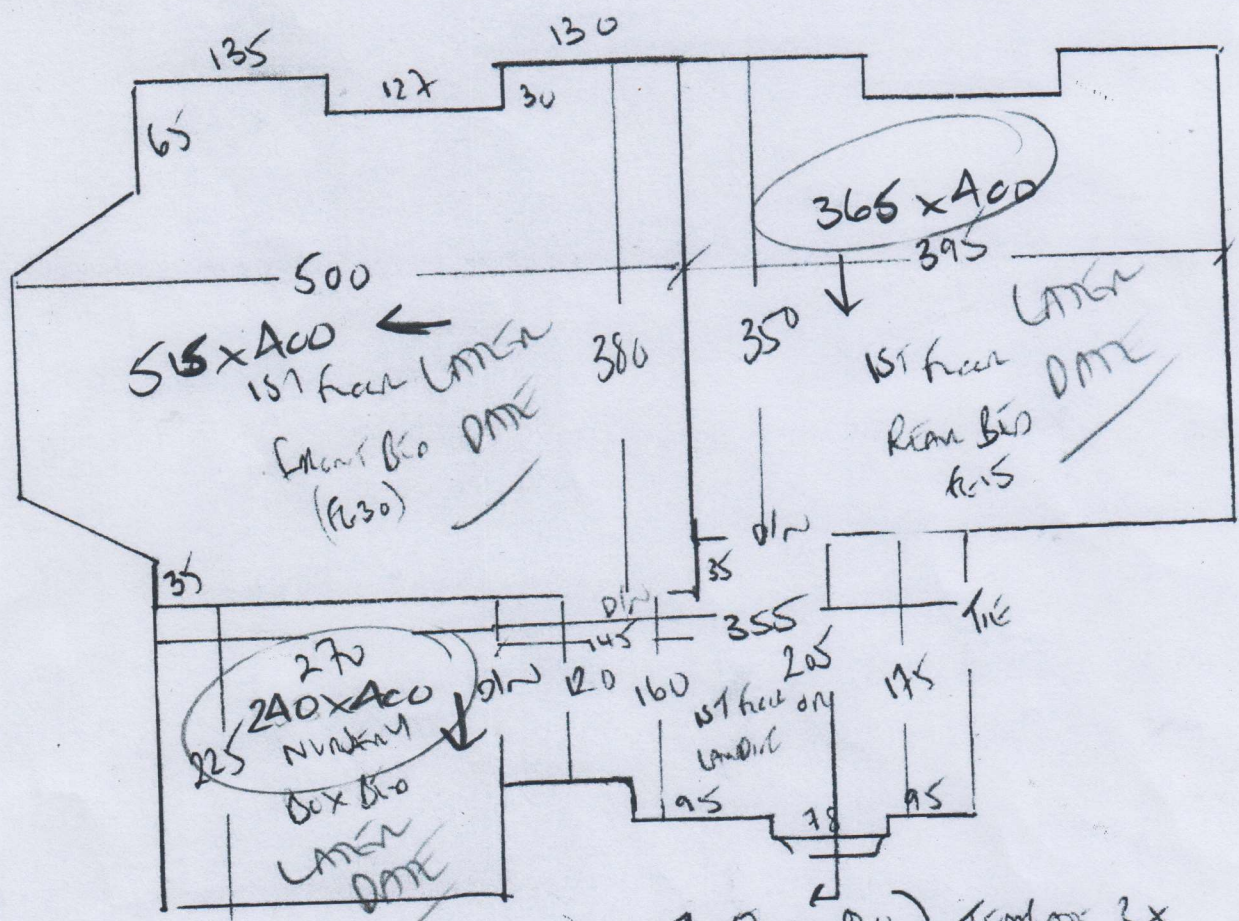 135
130
127
30
65
365 x 400
395
500
515 x 400
1ST FLOOR LATER
DATE
FRONT BED
(FG30)
380
350
1ST FLOOR
LATER
DATE
REAR BED
D/W
35
35
D/W
355
TILE
145
270
240 x 400
NURSERY
BOX BED
LATER
DATE
225
D/W
120
160
205
175
1ST FLOOR
LANDING
95
78
95